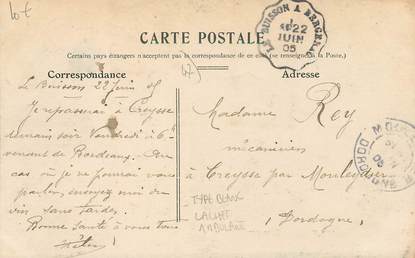 CARTE POSTALE
Certains pays étrangers n'acceptent pas la correspondance de ce côté (se renseigner à la Poste.)
Correspondance
Adresse
LE BUISSON A BERGERAC
22
JUIN
05
Le Buisson 22 Juin 05
Je repasserai à Creysse
demain soir Vendredi à 6h
venant de Bordeaux. Au
cas où je ne pourrai vous
parler, envoyez moi du
vin sans tarder.
Bonne Santé à vous tous
Madame Rey
mécanicien
à Creysse par Mouleydier
Dordogne
TYPE BLANC
CACHET
AMBULANT
DORDOGNE
05